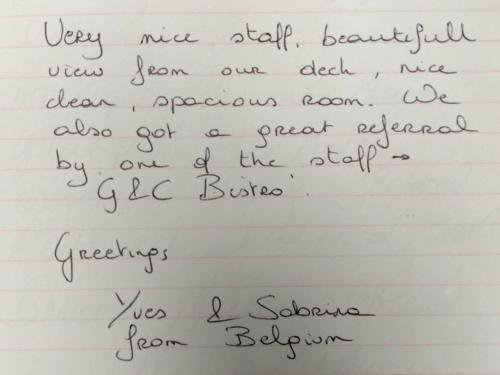 Very nice staff, beautifull
view from our deck, nice
clean, spacious room. We
also got a great referral
by one of the staff →
G&C Bistro'.
Greetings
Yves & Sabrina
from Belgium